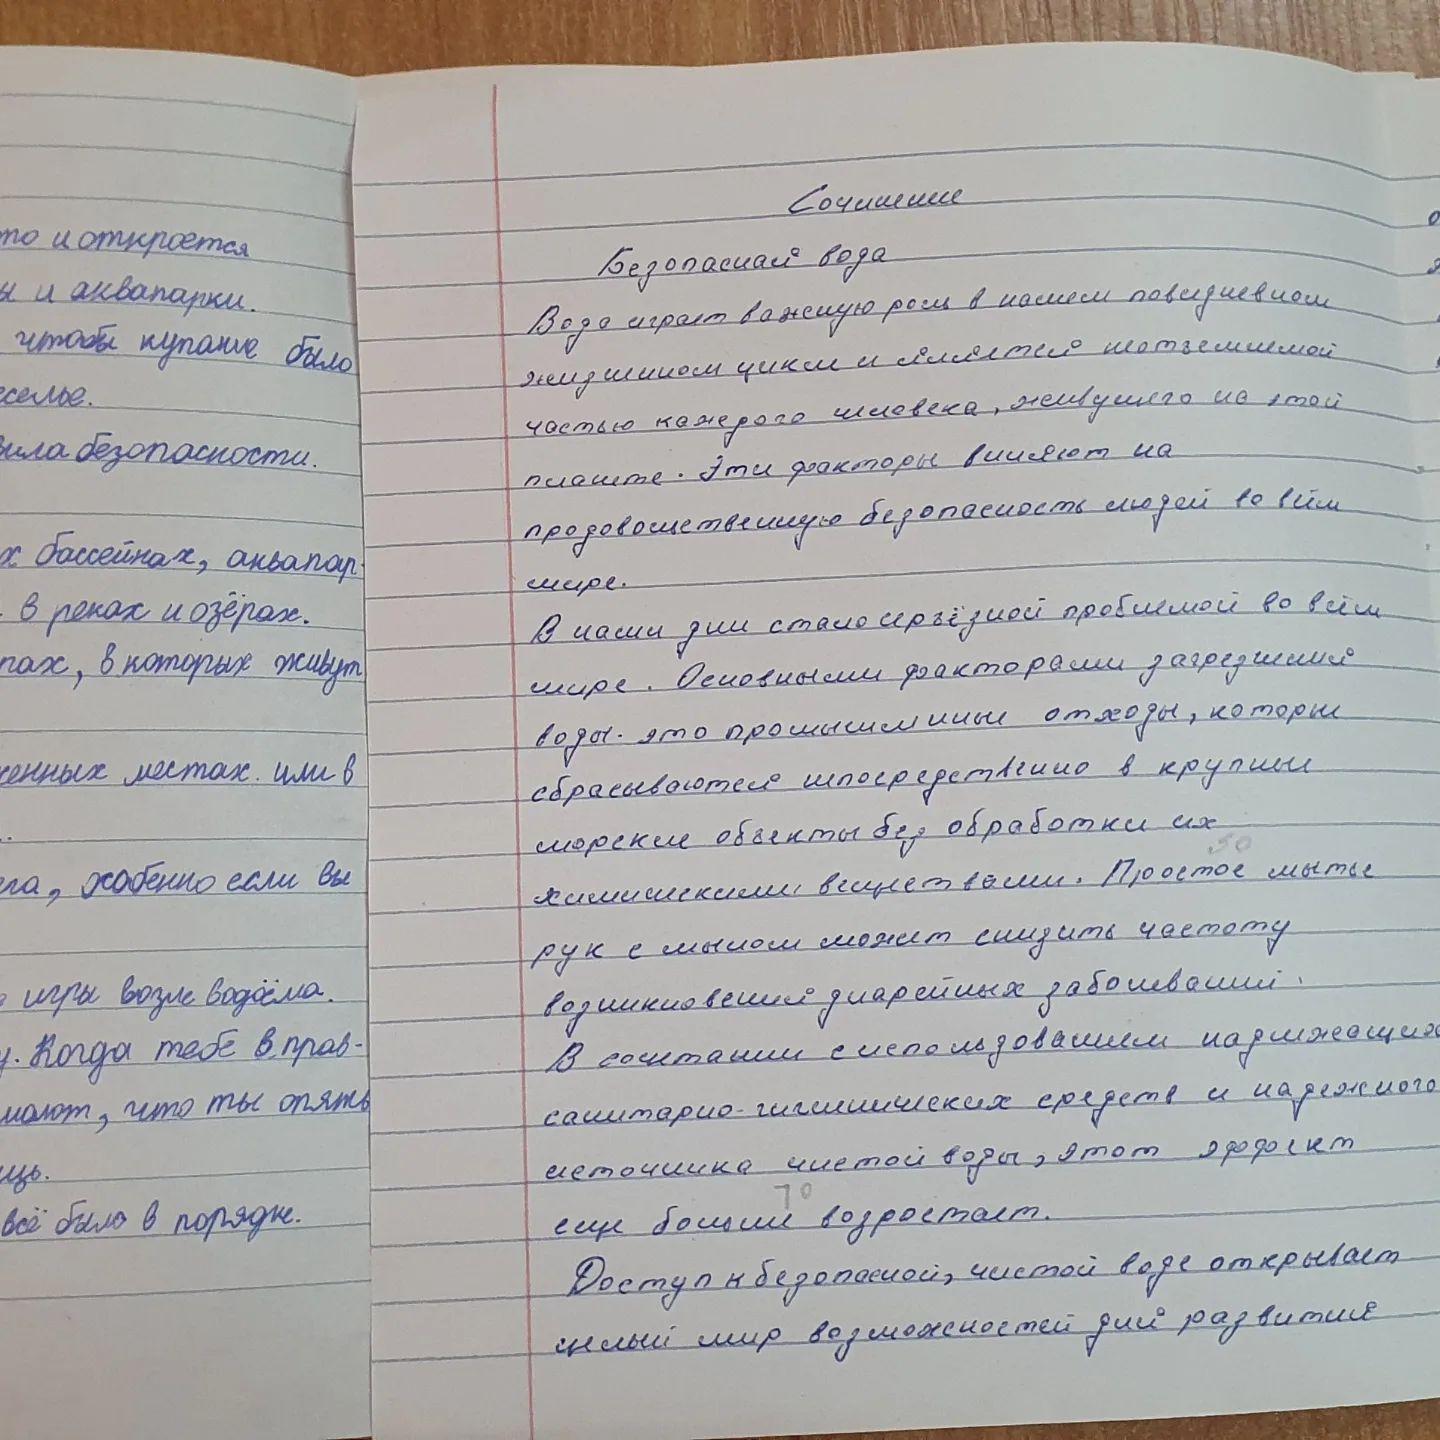 то и откроется
ы и аквапарки.
чтобы купание было
еселье.
вила безопасности.
х бассейнах, аквапар-
в реках и озёрах.
пах, в которых живут
женных местах. или в
ега, особенно если вы
игры возле водоёма.
у. Когда тебе в прав-
мают, что ты опять
ощь.
всё было в порядке.
Сочинение
Безопасная вода
Вода играет важную роль в нашем повседневном
жизненном цикле и является неотъемлемой
частью каждого человека, живущего на этой
планете. Эти факторы влияют на
продовольственную безопасность людей во всём
мире.
В наши дни стало серьёзной проблемой во всём
мире. Основными факторами загрезнения
воды. это промышленные отходы, которые
сбрасываются непосредственно в крупные
морские объекты без обработки их
химическими веществами. Простое мытье
рук с мылом может снизить частоту
возникновения диарейных заболеваний.
В сочетании с использованием надлежащих
санитарно-гигиенических средств и надежного
источника чистой воды, этот эффект
еще больше возростает.
Доступ к безопасной, чистой воде открывает
целый мир возможностей для развития